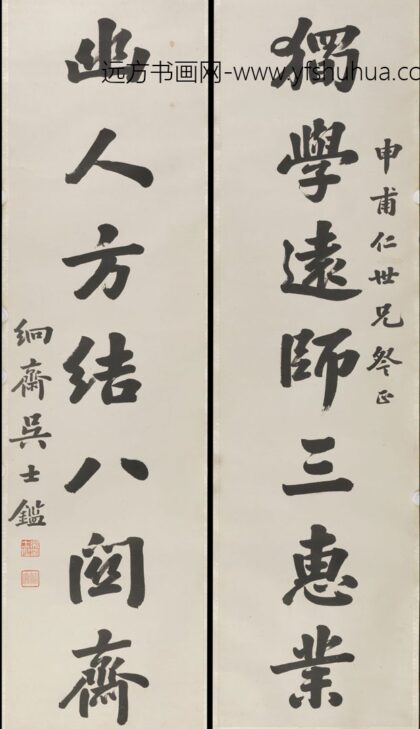 远方书画网-www.yfshuhua.co
申甫仁世兄詧正
獨學遠師三惠業
幽人方結八關齋
絅齋吳士鑑